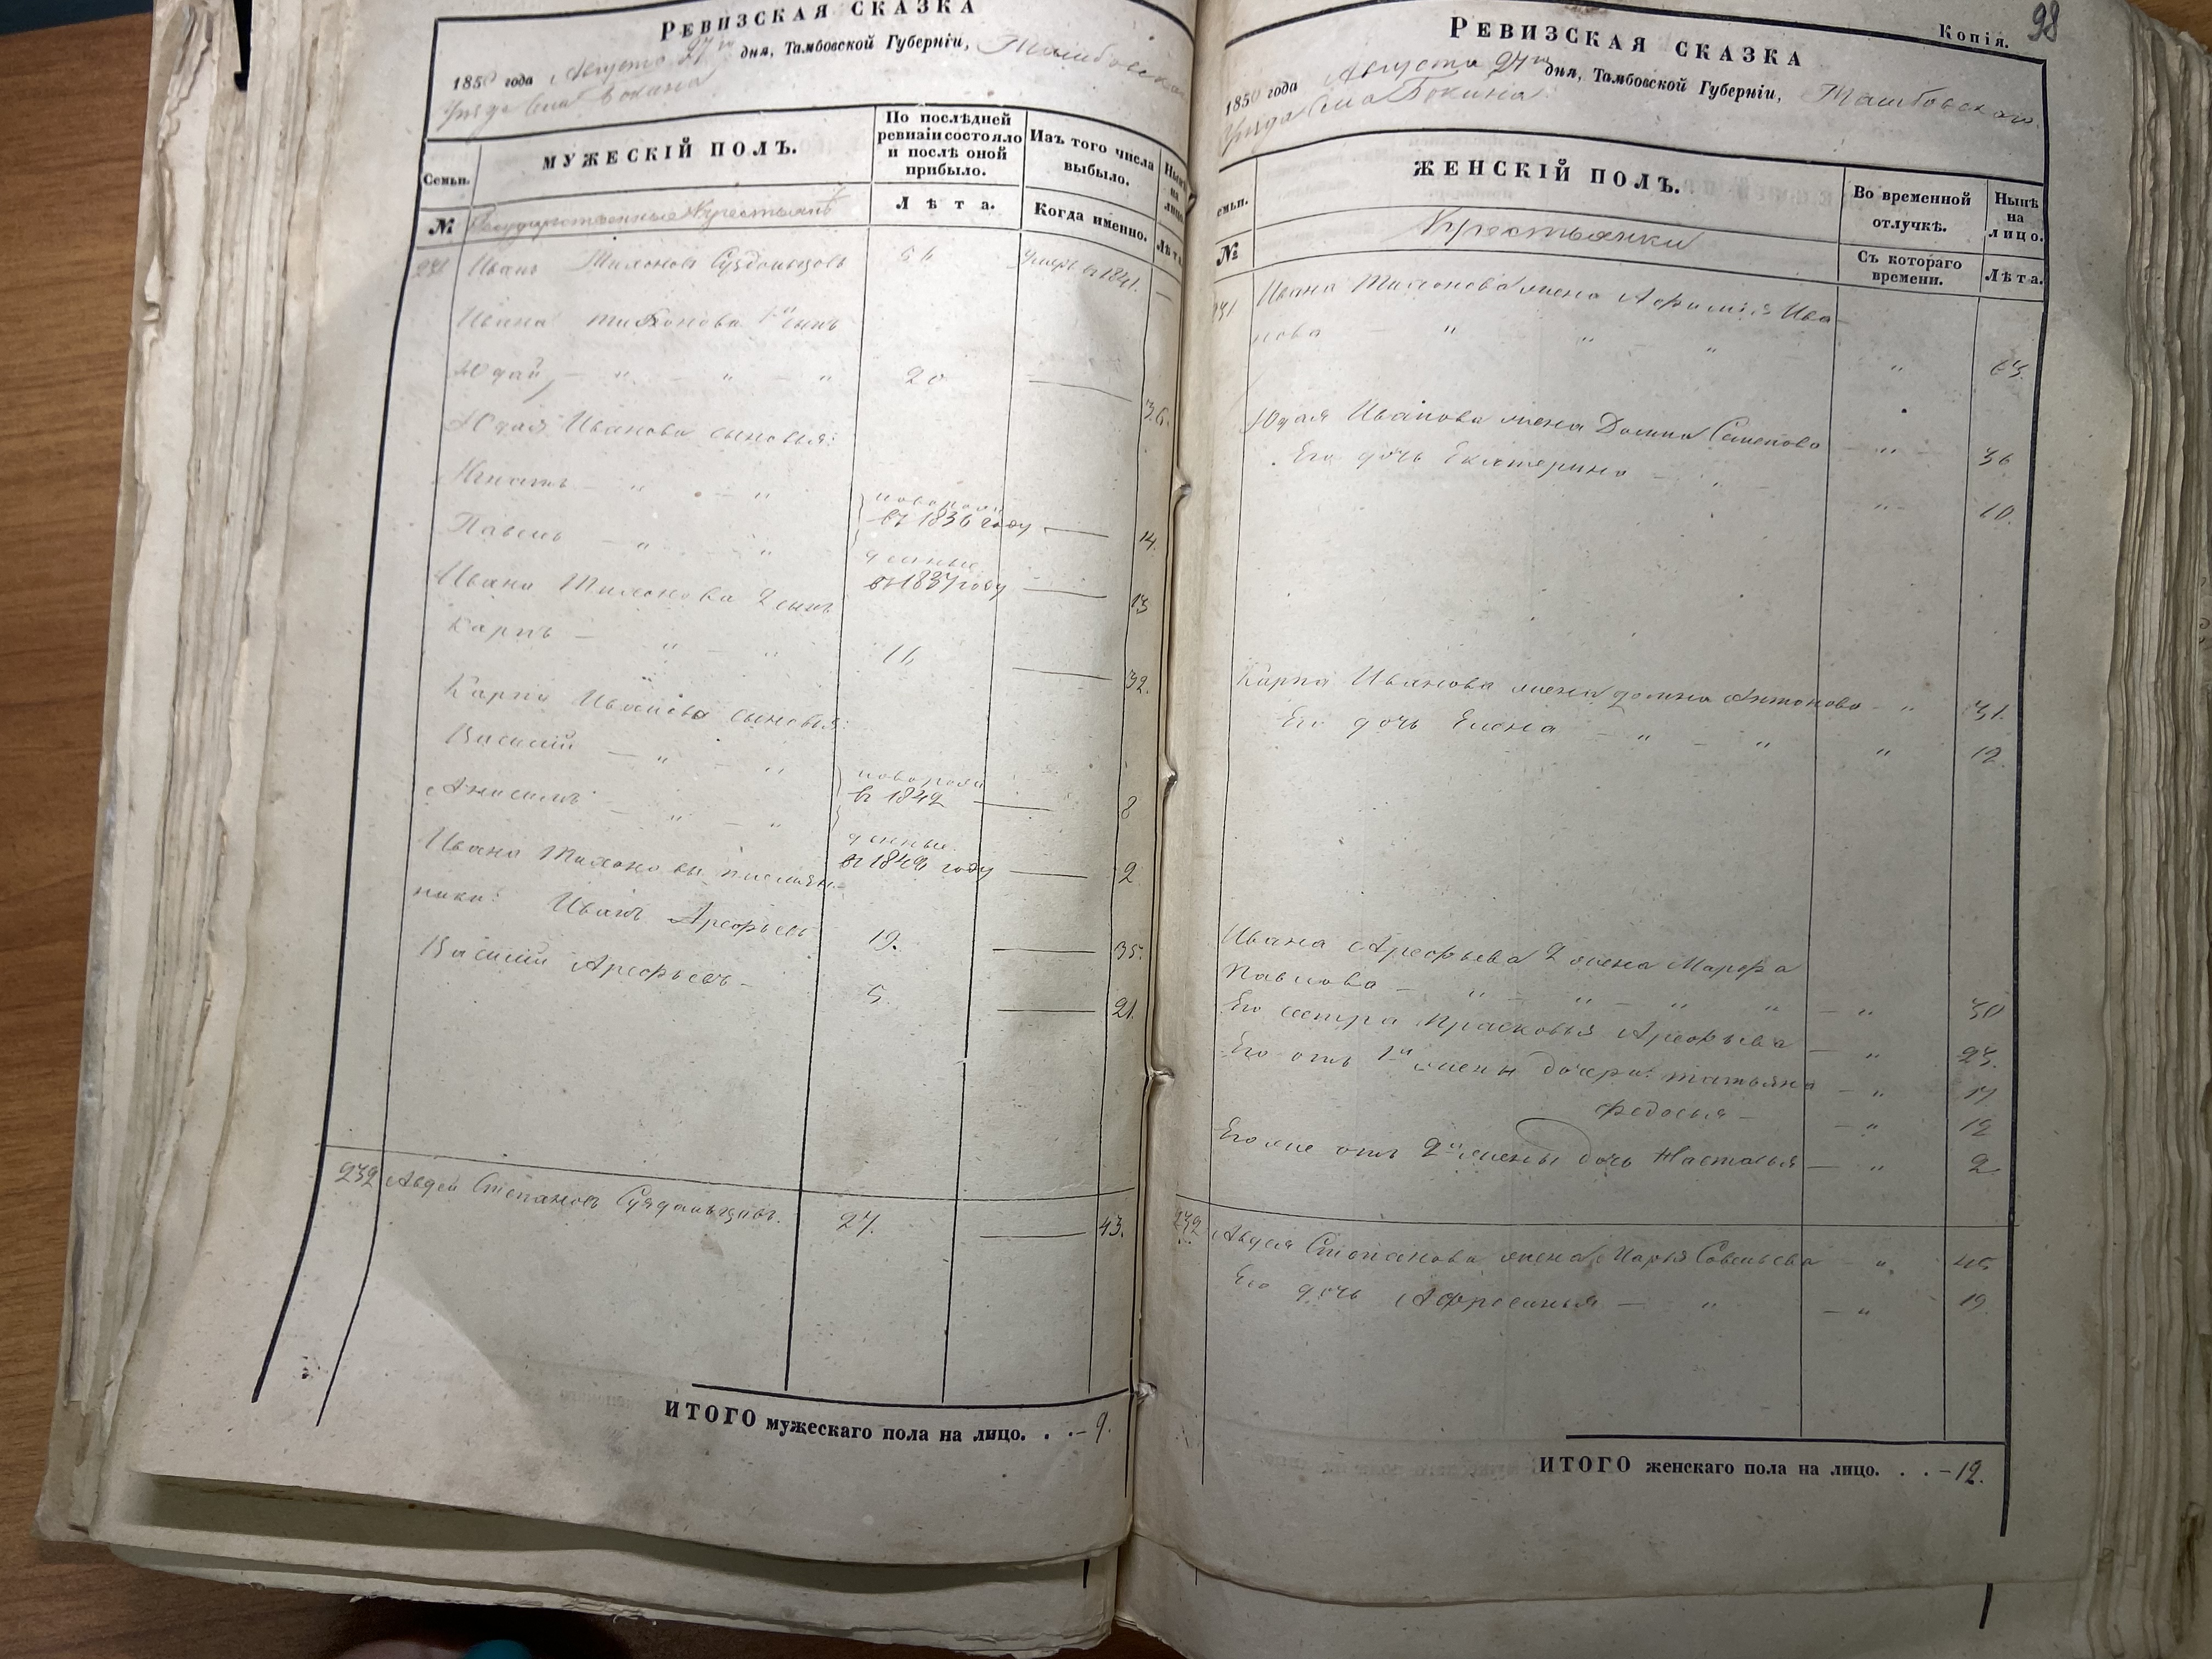 РЕВИЗСКАЯ СКАЗКА
1850 года Августа 27го дня, Тамбовской Губерніи, Тамбовскаго
Уѣзда Села Бокина
Семьи.
МУЖЕСКІЙ ПОЛЪ.
По послѣдней ревизіи состояло и послѣ оной прибыло.
Изъ того числа выбыло.
Нынѣ на лицо.
№
Государственные Крестьяне
Лѣта.
Когда именно.
Лѣта.
231 Иванъ Тихоновъ Суздальцовъ 56 умеръ въ 1841. —
Ивана Тихонова 1й сынъ
Юдай, — " — " — " 20 — 36.
Юдая Ивановa сыновья:
Игнатъ — " — " новорож въ 1836 году — 14.
Павелъ — " " денные въ 1837 году — 13
Ивана Тихонова 2 сынъ
Карпъ — " — " 16 — 32.
Карпа Иванова сыновья:
Василий — " — " новорож въ 1842 — 8
Анисимъ — " — " денные въ 1848 году — 2
Ивана Тихонова племян-
ники: Иванъ Арефьевъ 19. — 35.
Василий Арефьевъ — 5. — 21.
232 Авдей Степановъ Суздальцовъ. 27. — 43.
ИТОГО мужескаго пола на лицо. . . — 9.
Копія. 98
РЕВИЗСКАЯ СКАЗКА
1850 года Августа 27го дня, Тамбовской Губерніи, Тамбовскаго
Уѣзда Села Бокина
семьи.
ЖЕНСКІЙ ПОЛЪ.
Во временной отлучкѣ.
Нынѣ на лицо.
№
Крестьянки
Съ котораго времени.
Лѣта.
231 Ивана Тихонова жена Афимія Ива-
нова — " " — " " 63.
Юдая Иванова жена Домна Семенова — " — 36
Его дочь Екатерина — " — " 10.
Карпа Иванова жена Домна Антонова — " 31.
Его дочь Елена — " — " " 12.
Ивана Арефьева 2 жена Марфа
Павлова — " — " — " " — " 30
Его сестра Прасковья Арефьева — " 23.
Его отъ 1й жены дочери: Татьяна — " 17
Федосья — — " 12
Его же отъ 2й жены дочь Настасья — " 2
232 Авдея Степанова жена Марья Савельева — " 45
Его дочь Афросинья — " — " 19.
ИТОГО женскаго пола на лицо. . . — 12.